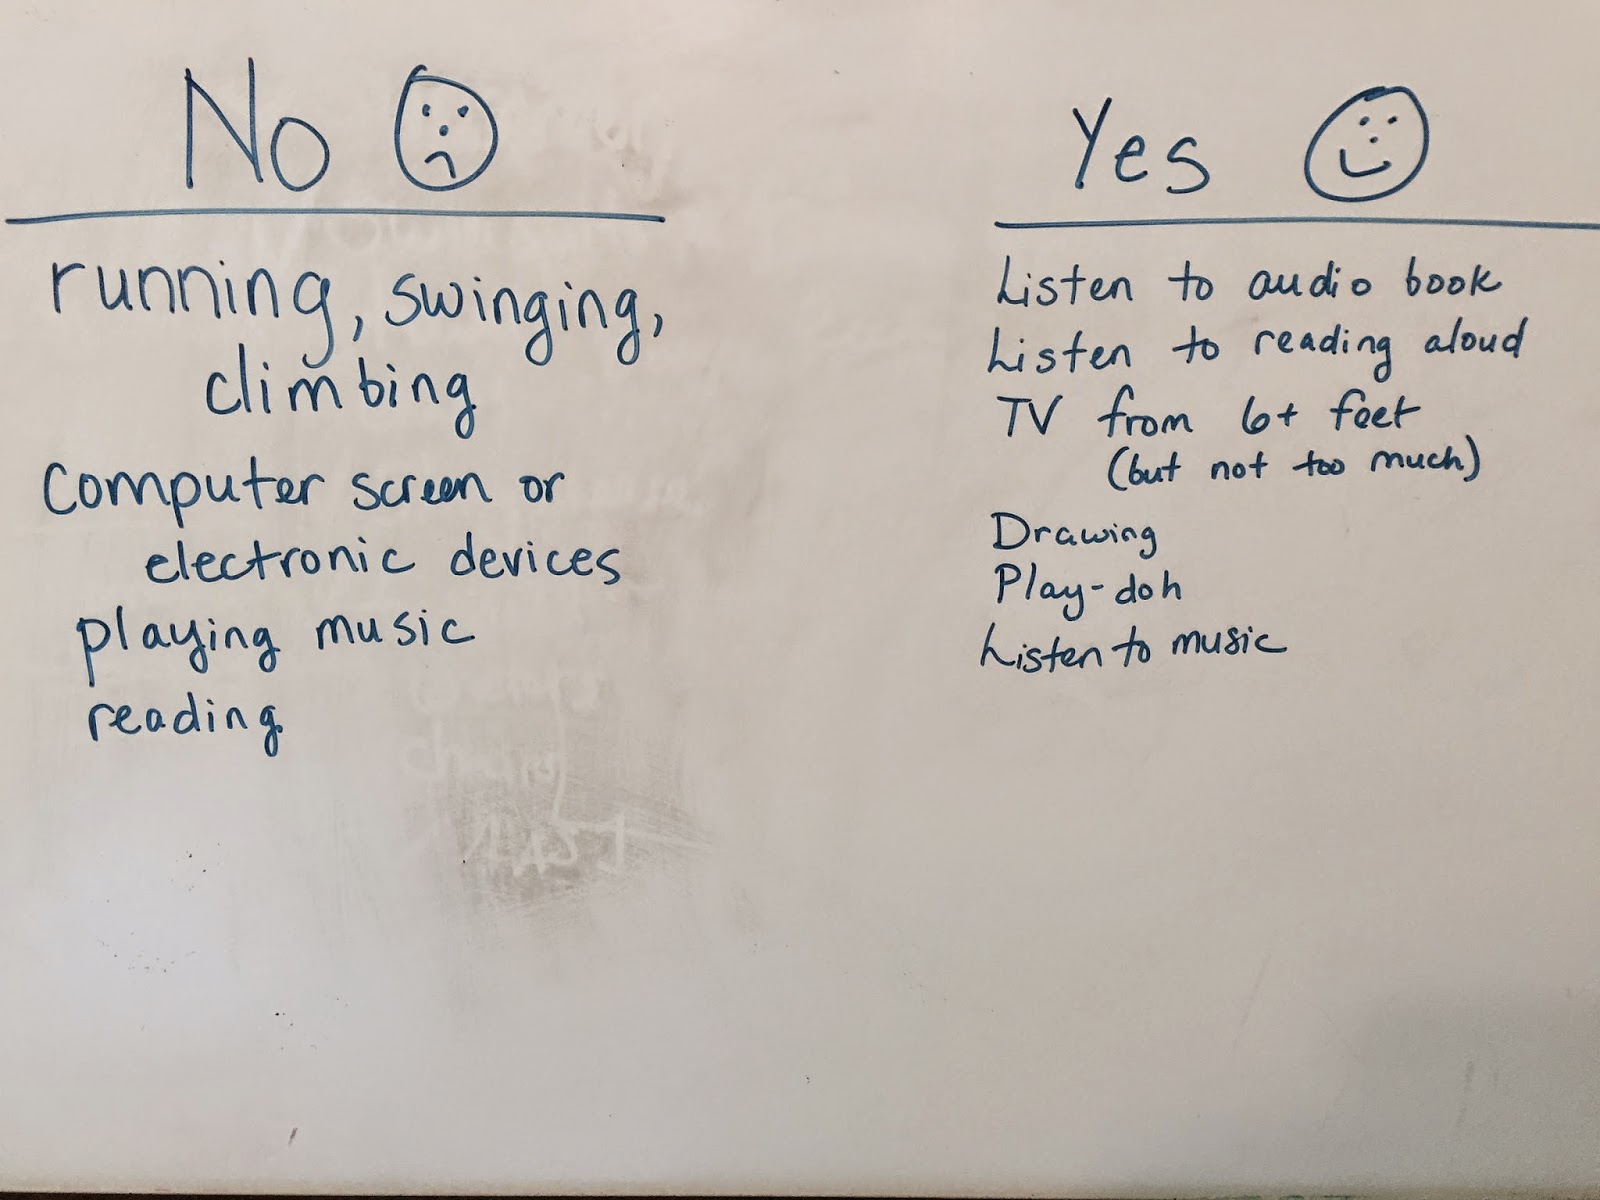 No
running, swinging,
climbing
Computer screen or
electronic devices
playing music
reading
Yes
Listen to audio book
Listen to reading aloud
TV from 6+ feet
(but not too much)
Drawing
Play-doh
Listen to music